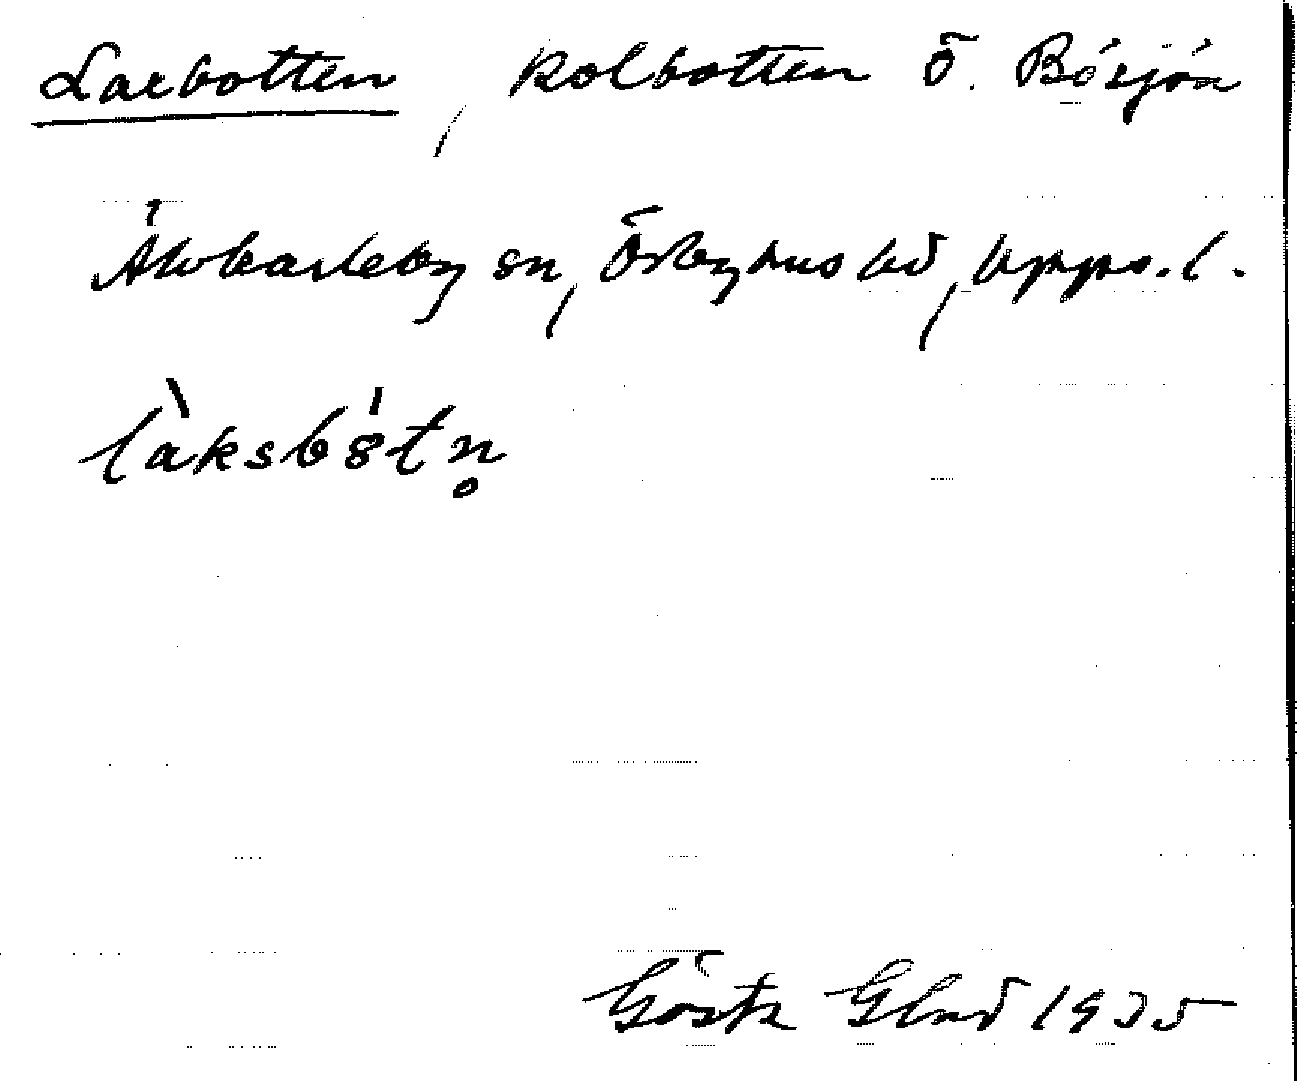 Laxbotten, kolbotten Ö. Bösjön
Älvkarleby sn, Örbyhus hd, Upps. l.
làksbót n̥
Gösta Glad 1935